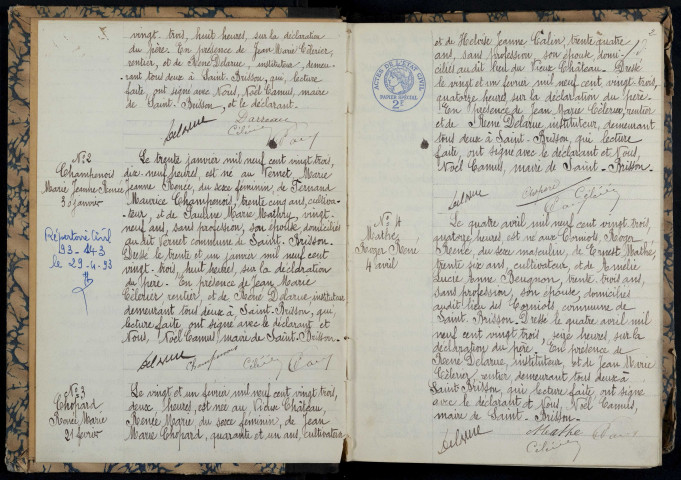 vingt-trois, huit heures, sur la déclaration
du père. En présence de Jean Marie Célérier,
rentier, et de René Delarue, instituteur, demeu-
rant tous deux à Saint-Brisson, qui, lecture
faite, ont signé avec Nous, Noël Camus, maire
de Saint-Brisson, et le déclarant.
Delarue
N° 2
Champenois
Marie Jeanne Renée
30 janvier
Répertoire Civil
93-143
le 29-4-93
Le trente janvier mil neuf cent vingt trois,
dix-neuf heures, est née au Vernet Marie
Jeanne Renée, du sexe féminin, de Fernand
Maurice Champenois, trente cinq ans, cultiva-
teur, et de Pauline Marie Mathey, vingt-
neuf ans, sans profession, son épouse domiciliés
audit Vernet commune de Saint-Brisson.
Dressé le trente et un janvier mil neuf cent
vingt-trois, huit heures, sur la déclaration
du père. En présence de Jean Marie
Célérier, rentier, et de René Delarue, instituteur,
demeurant tous deux à Saint-Brisson, qui,
lecture faite ont signé avec le déclarant et
Nous, Noël Camus, maire de Saint-Brisson.
Delarue Champenois
N° 3
Chopard
Renée Marie
21 février
Le vingt et un février mil neuf cent vingt trois,
deux heures, est née au Vieux Château,
Renée Marie du sexe féminin, de Jean
Marie Chopard, quarante et un ans, cultivateur
2
ACTES DE L'ETAT CIVIL
PAPIER SPÉCIAL
2F
et de Héloïse Jeanne Galin, trente quatre
ans, sans profession, son épouse, domi-
ciliés audit lieu du Vieux Château. Dressé
le vingt et un février mil neuf cent vingt-trois,
quatorze heures, sur la déclaration du père.
En présence de Jean Marie Célérier, rentier
et de René Delarue instituteur, demeurant
tous deux à Saint-Brisson, qui lecture
faite, ont signé avec le déclarant et Nous,
Noël Camus, maire de Saint-Brisson.
Delarue Chopard Célérier
N° 4
Mathé
Roger René
4 avril
Le quatre avril mil neuf cent vingt trois,
quatorze heures, est né aux Cormiots, Roger
René, du sexe masculin, de Ernest Mathé,
trente six ans, cultivateur, et de Amélie
Lucie Anne Beugnon, trente trois ans,
sans profession, son épouse, domiciliés
audit lieu des Cormiots, commune de
Saint-Brisson. Dressé le quatre avril mil
neuf cent vingt trois, seize heures, sur la
déclaration du père. En présence de
René Delarue, instituteur, et de Jean Marie
Célérier, rentier demeurant tous deux à
Saint-Brisson, qui lecture faite, ont signé
avec le déclarant et Nous, Noël Camus,
maire de Saint-Brisson.
Delarue Mathé
Célérier